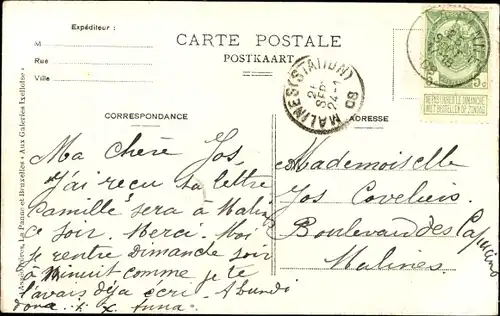 Expéditeur :
M
Rue
Ville
CARTE POSTALE
POSTKAART
MALINES (STATION)
24-1
08
5c
NE PAS LIVRER LE DIMANCHE
NIET BESTELLEN OP ZONDAG
La Panne et Bruxelles - Aux Galeries Ixelloise
CORRESPONDANCE
ADRESSE
Ma chère Jos,
J'ai reçu ta lettre
Camille sera à Malines
ce soir. Merci. Moi
je rentre Dimanche soir
à minuit comme je te
l'avais déja écri. A Lundi
donc.
Mademoiselle
Jos Coveliers
Boulevard des Capucins
Malines